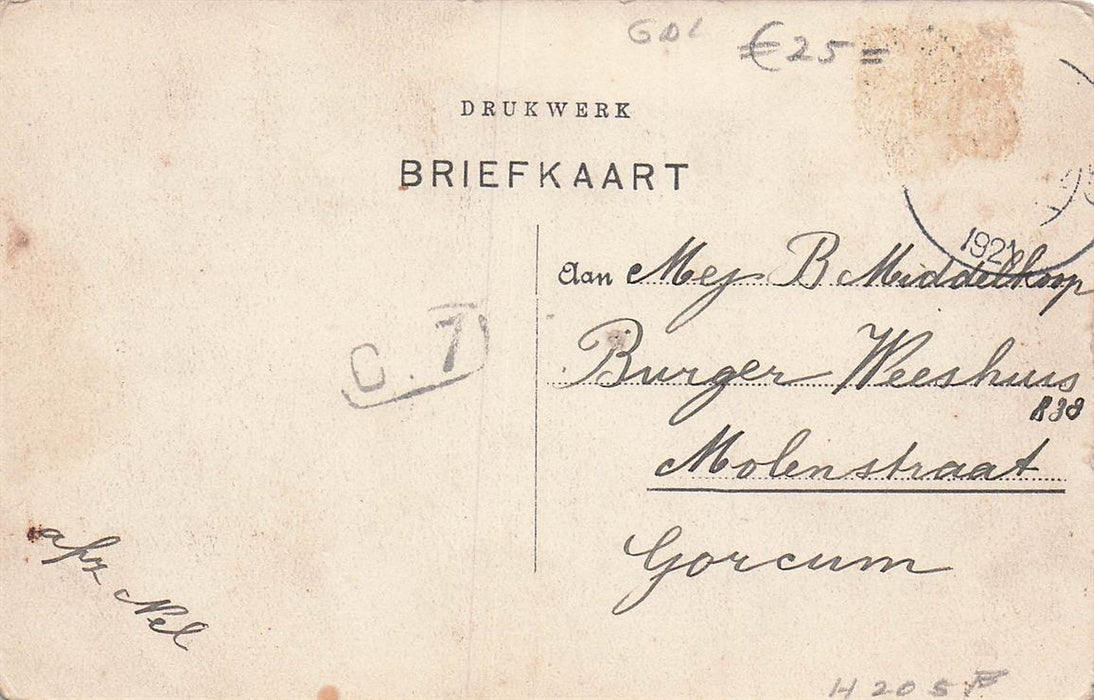 GDL €25=
DRUKWERK
BRIEFKAART
1921
Aan Mej B Middelkoop
Burger Weeshuis
R38
Molenstraat
Gorcum
C. 7
afz Nel
H205F